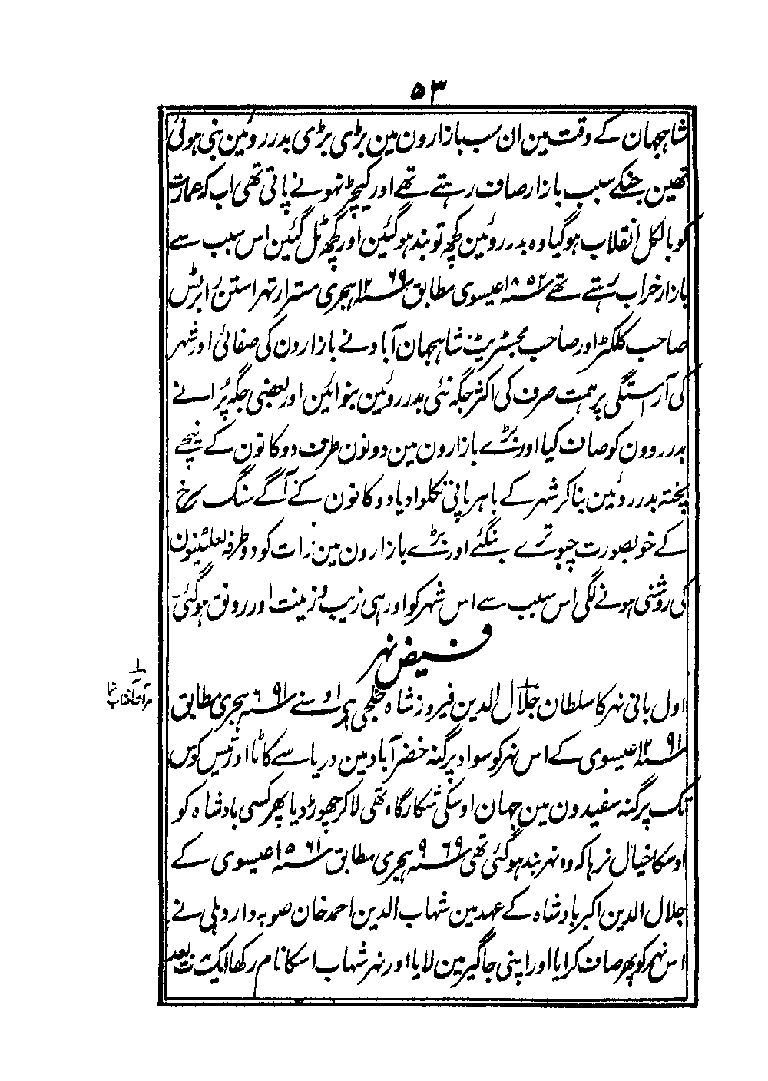 ۵۳
شاہجہان کے وقت مین ان سب بازارون مین بڑی بڑی بدرروئین بنی ہوئی
تھین جنکے سبب بازار صاف رہتے تھے اور کیچڑ نہونے پاتی تھی اب کہ عمارت
کو بالکل انقلاب ہوگیا وہ بدرروئین کچھ تو بند ہوگئین اور کچھ ٹل گئین اس سبب سے
بازار خراب رہتے تھے سنہ ۱۸۵۲ عیسوی مطابق سنہ ۱۲۶۹ ہجری مسترارتهر استن رابرٹس
صاحب کلکٹر اور صاحب مجسٹریٹ شاہجہان آباد نے بازارون کی صفائی اور شہر
کی آراستگی پر ہمت صرف کی اکثر جگہ نئی بدرروئین بنوائین اور بعضی جگہ پرانے
بدرروون کو صاف کیا اور بڑے بازارون مین دونون طرف دوکانون کے نیچے
پختہ بدرروئین بناکر شہر کے باہر پانی نکلوادیا دوکانون کے آگے سنگ سرخ
کے خوبصورت چبوترے بنگئے اور بڑے بازارون مین رات کو دوطرفہ لعلٹینون
کی روشنی ہونے لگی اس سبب سے اس شہر کو اور ہی زیب و زینت اور رونق ہوگئی
فیض نہر
اول بانی نہر کا سلطان جلال الدین فیروز شاہ خلجی ہی اوسنے سنہ ۶۹۱ ہجری مطابق
سنہ ۱۲۹۱ عیسوی کے اس نہر کو سواد پرگنہ خضرآباد مین دریا سے کاٹا اور تیس کوس
تک پرگنہ سفیدون مین جہان اوسکی شکارگاہ تھی لاکر چھوڑ دیا پھر کسی بادشاہ کو
اوسکا خیال نرہا کہ وہ نہر بند ہوگئی تھی سنہ ۹۶۹ ہجری مطابق سنہ ۱۵۶۱ عیسوی کے
جلال الدین اکبر بادشاہ کے عہد مین شہاب الدین احمد خان صوبہ دار دہلی نے
اس نہر کو پھر صاف کرایا اور اپنی جاگیر مین لایا اور نہر شہاب اسکا نام رکھا ایک مدت بعد